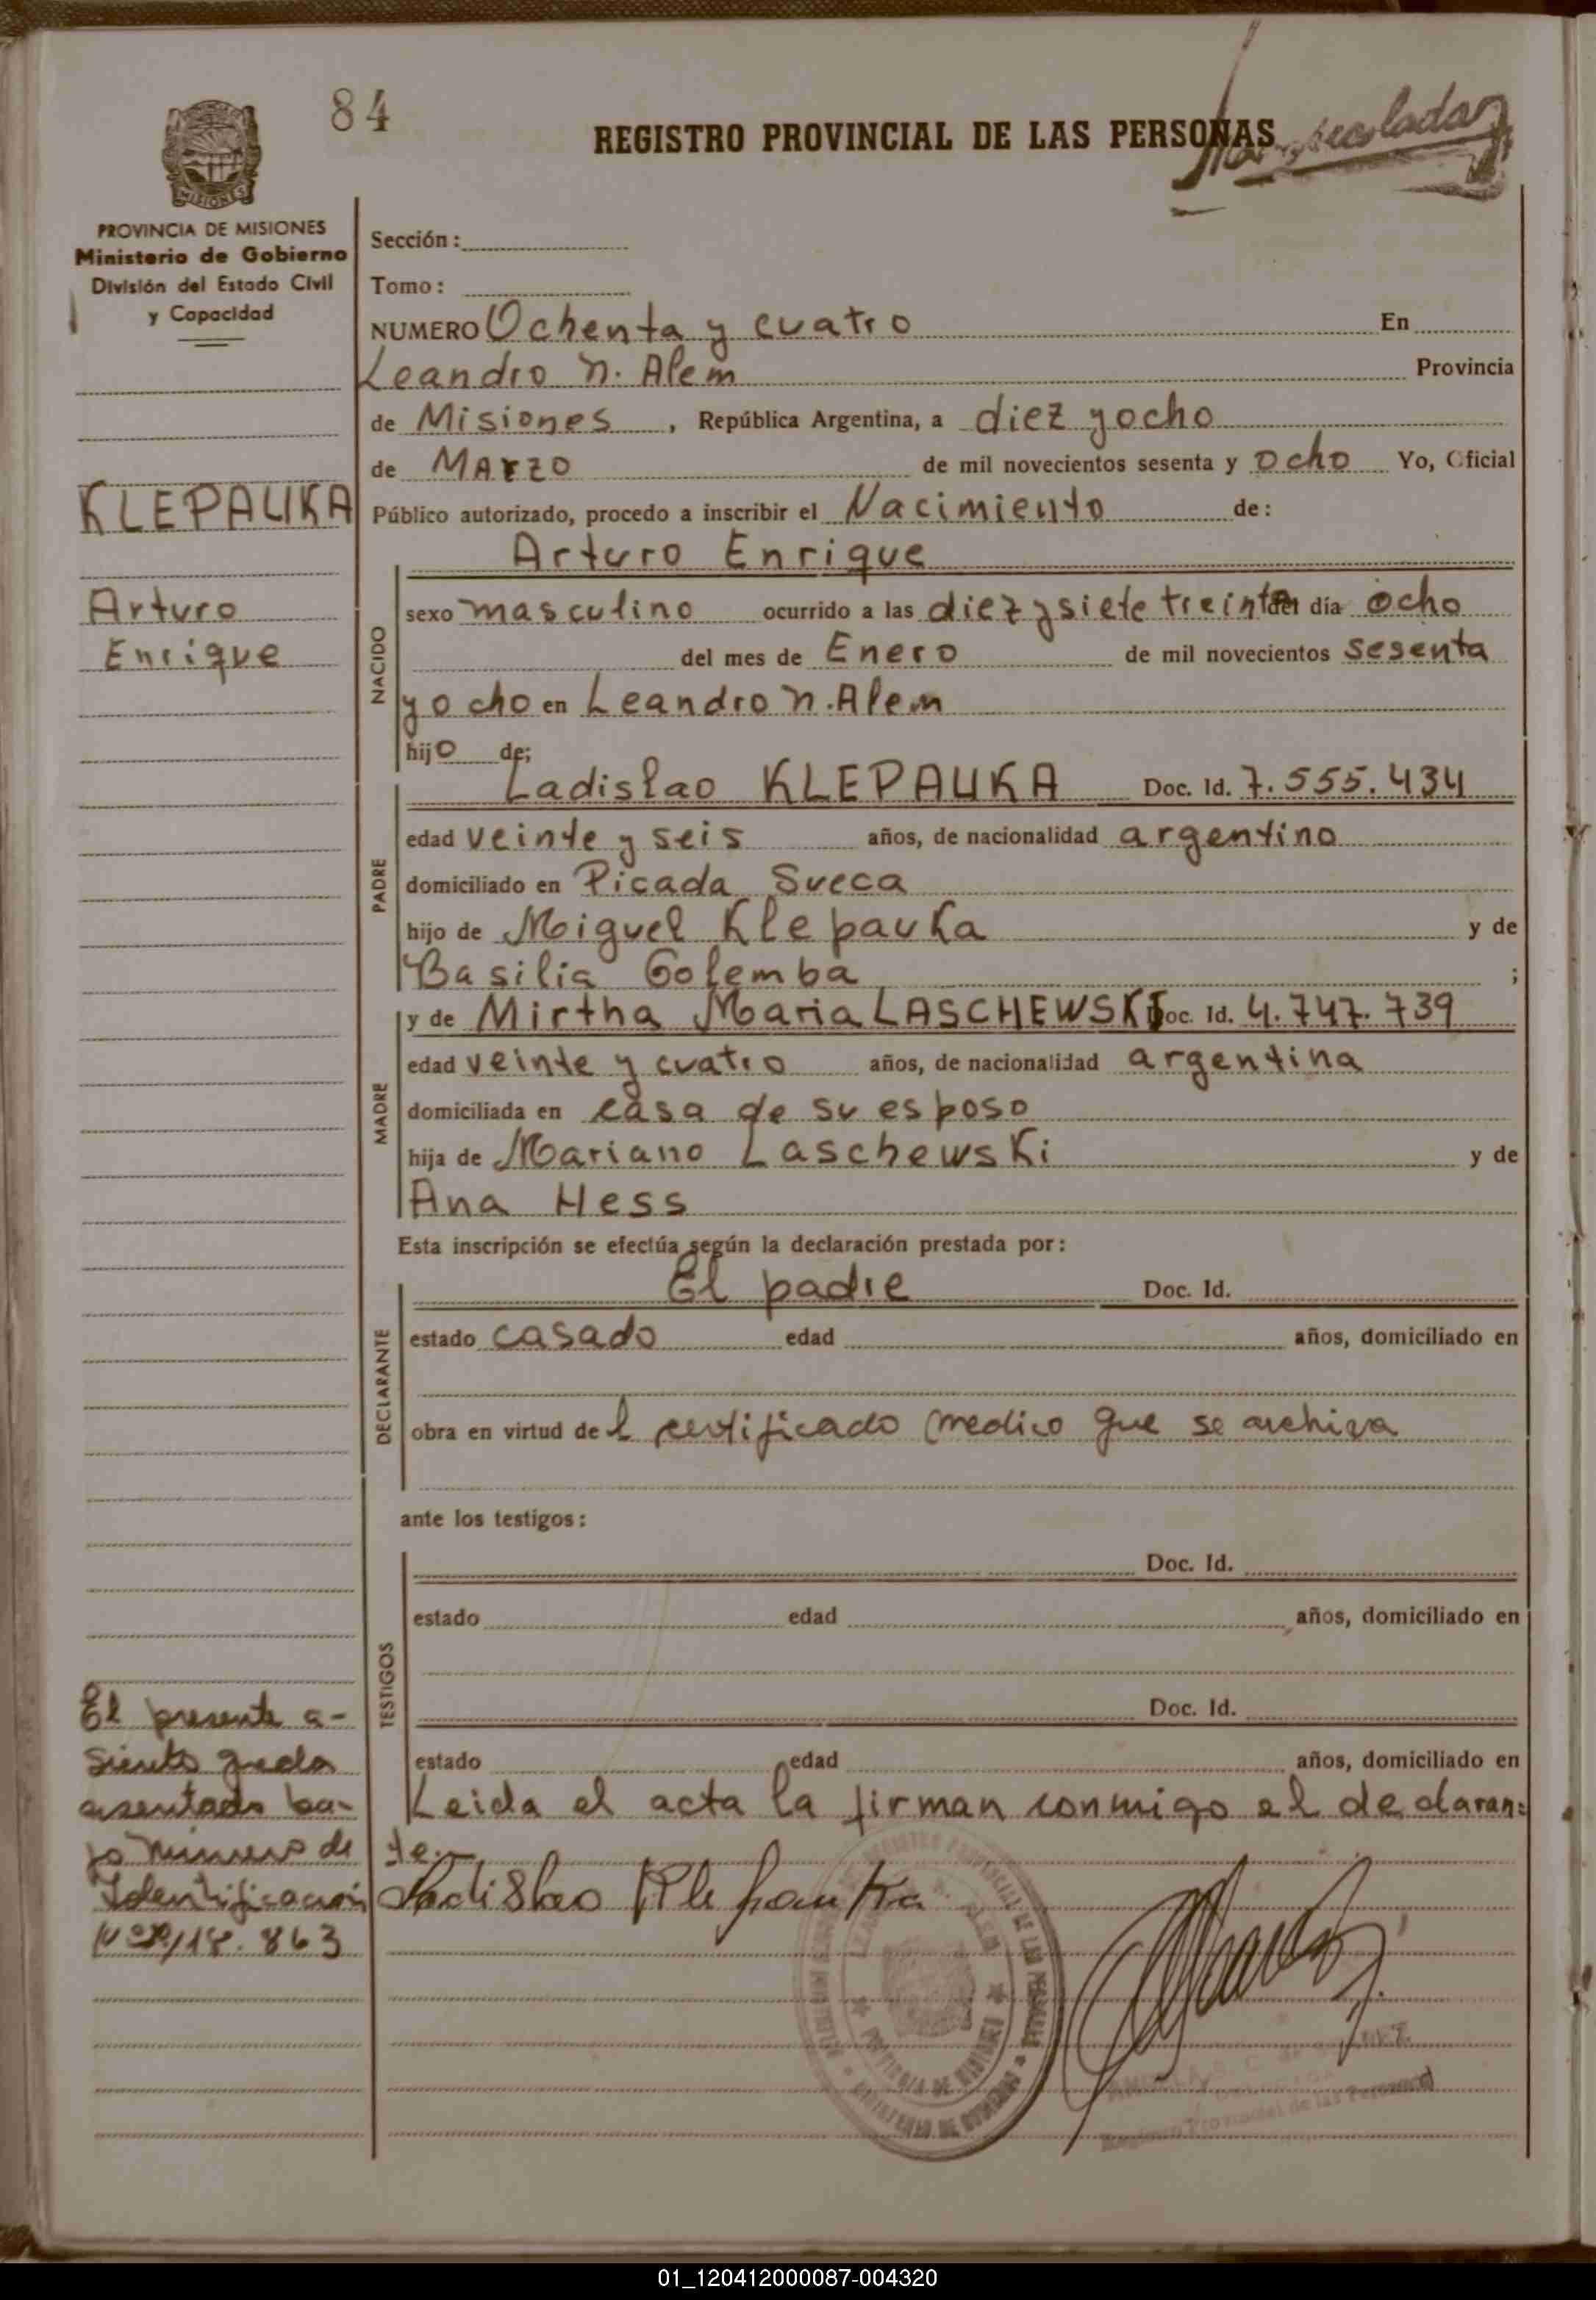 84
REGISTRO PROVINCIAL DE LAS PERSONAS
MISIONES
PROVINCIA DE MISIONES
Ministerio de Gobierno
División del Estado Civil
y Capacidad
Sección:
Tomo:
NUMERO Ochenta y cuatro En
Leandro N. Alem Provincia
de Misiones , República Argentina, a diez y ocho
de Marzo de mil novecientos sesenta y ocho Yo, Oficial
KLEPAUKA
Público autorizado, procedo a inscribir el Nacimiento de:
Arturo Enrique
Arturo
Enrique
NACIDO
sexo masculino ocurrido a las diez y siete treinta del día ocho
del mes de Enero de mil novecientos sesenta
y ocho en Leandro N. Alem
hijo de;
PADRE
Ladislao KLEPAUKA Doc. Id. 7.555.434
edad veinte y seis años, de nacionalidad argentino
domiciliado en Picada Sueca
hijo de Miguel Klepauka y de
Basilia Golemba ;
MADRE
y de Mirtha Maria LASCHEWSKI Doc. Id. 4.747.739
edad veinte y cuatro años, de nacionalidad argentina
domiciliada en casa de su esposo
hija de Mariano Laschewski y de
Ana Hess
Esta inscripción se efectúa según la declaración prestada por:
DECLARANTE
El padre Doc. Id.
estado casado edad años, domiciliado en
obra en virtud del certificado medico que se archiva
ante los testigos:
TESTIGOS
Doc. Id.
estado edad años, domiciliado en
Doc. Id.
estado edad años, domiciliado en
Leida el acta la firman conmigo el declaran=
te.—
Ladislao Klepauka
El presente a-
siento queda
asentado ba-
jo número de
Identificación
18.863
PROVINCIA DE MISIONES
MINISTERIO DE GOBIERNO
Registro Provincial de las Personas
01_120412000087-004320